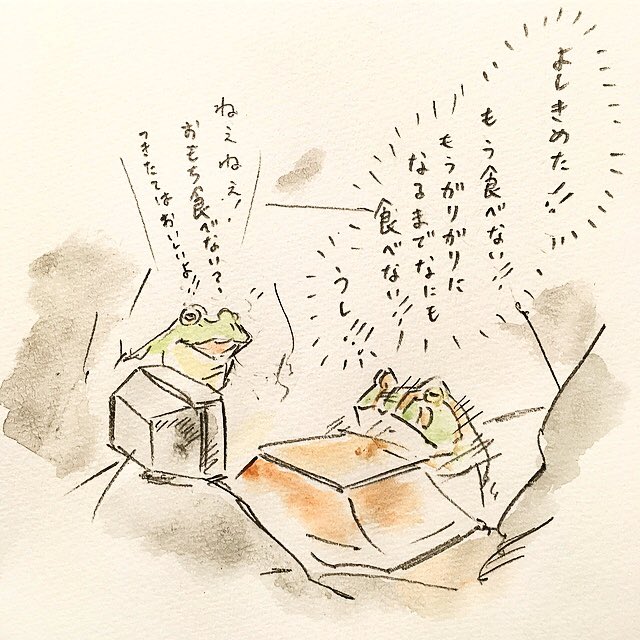 よしきめた!!
もう食べない!!
もうがりがりに
なるまでなにも
食べない!!
うし!!
ねぇねぇ!
おもち食べない?
つきたてはおいしいよ!!